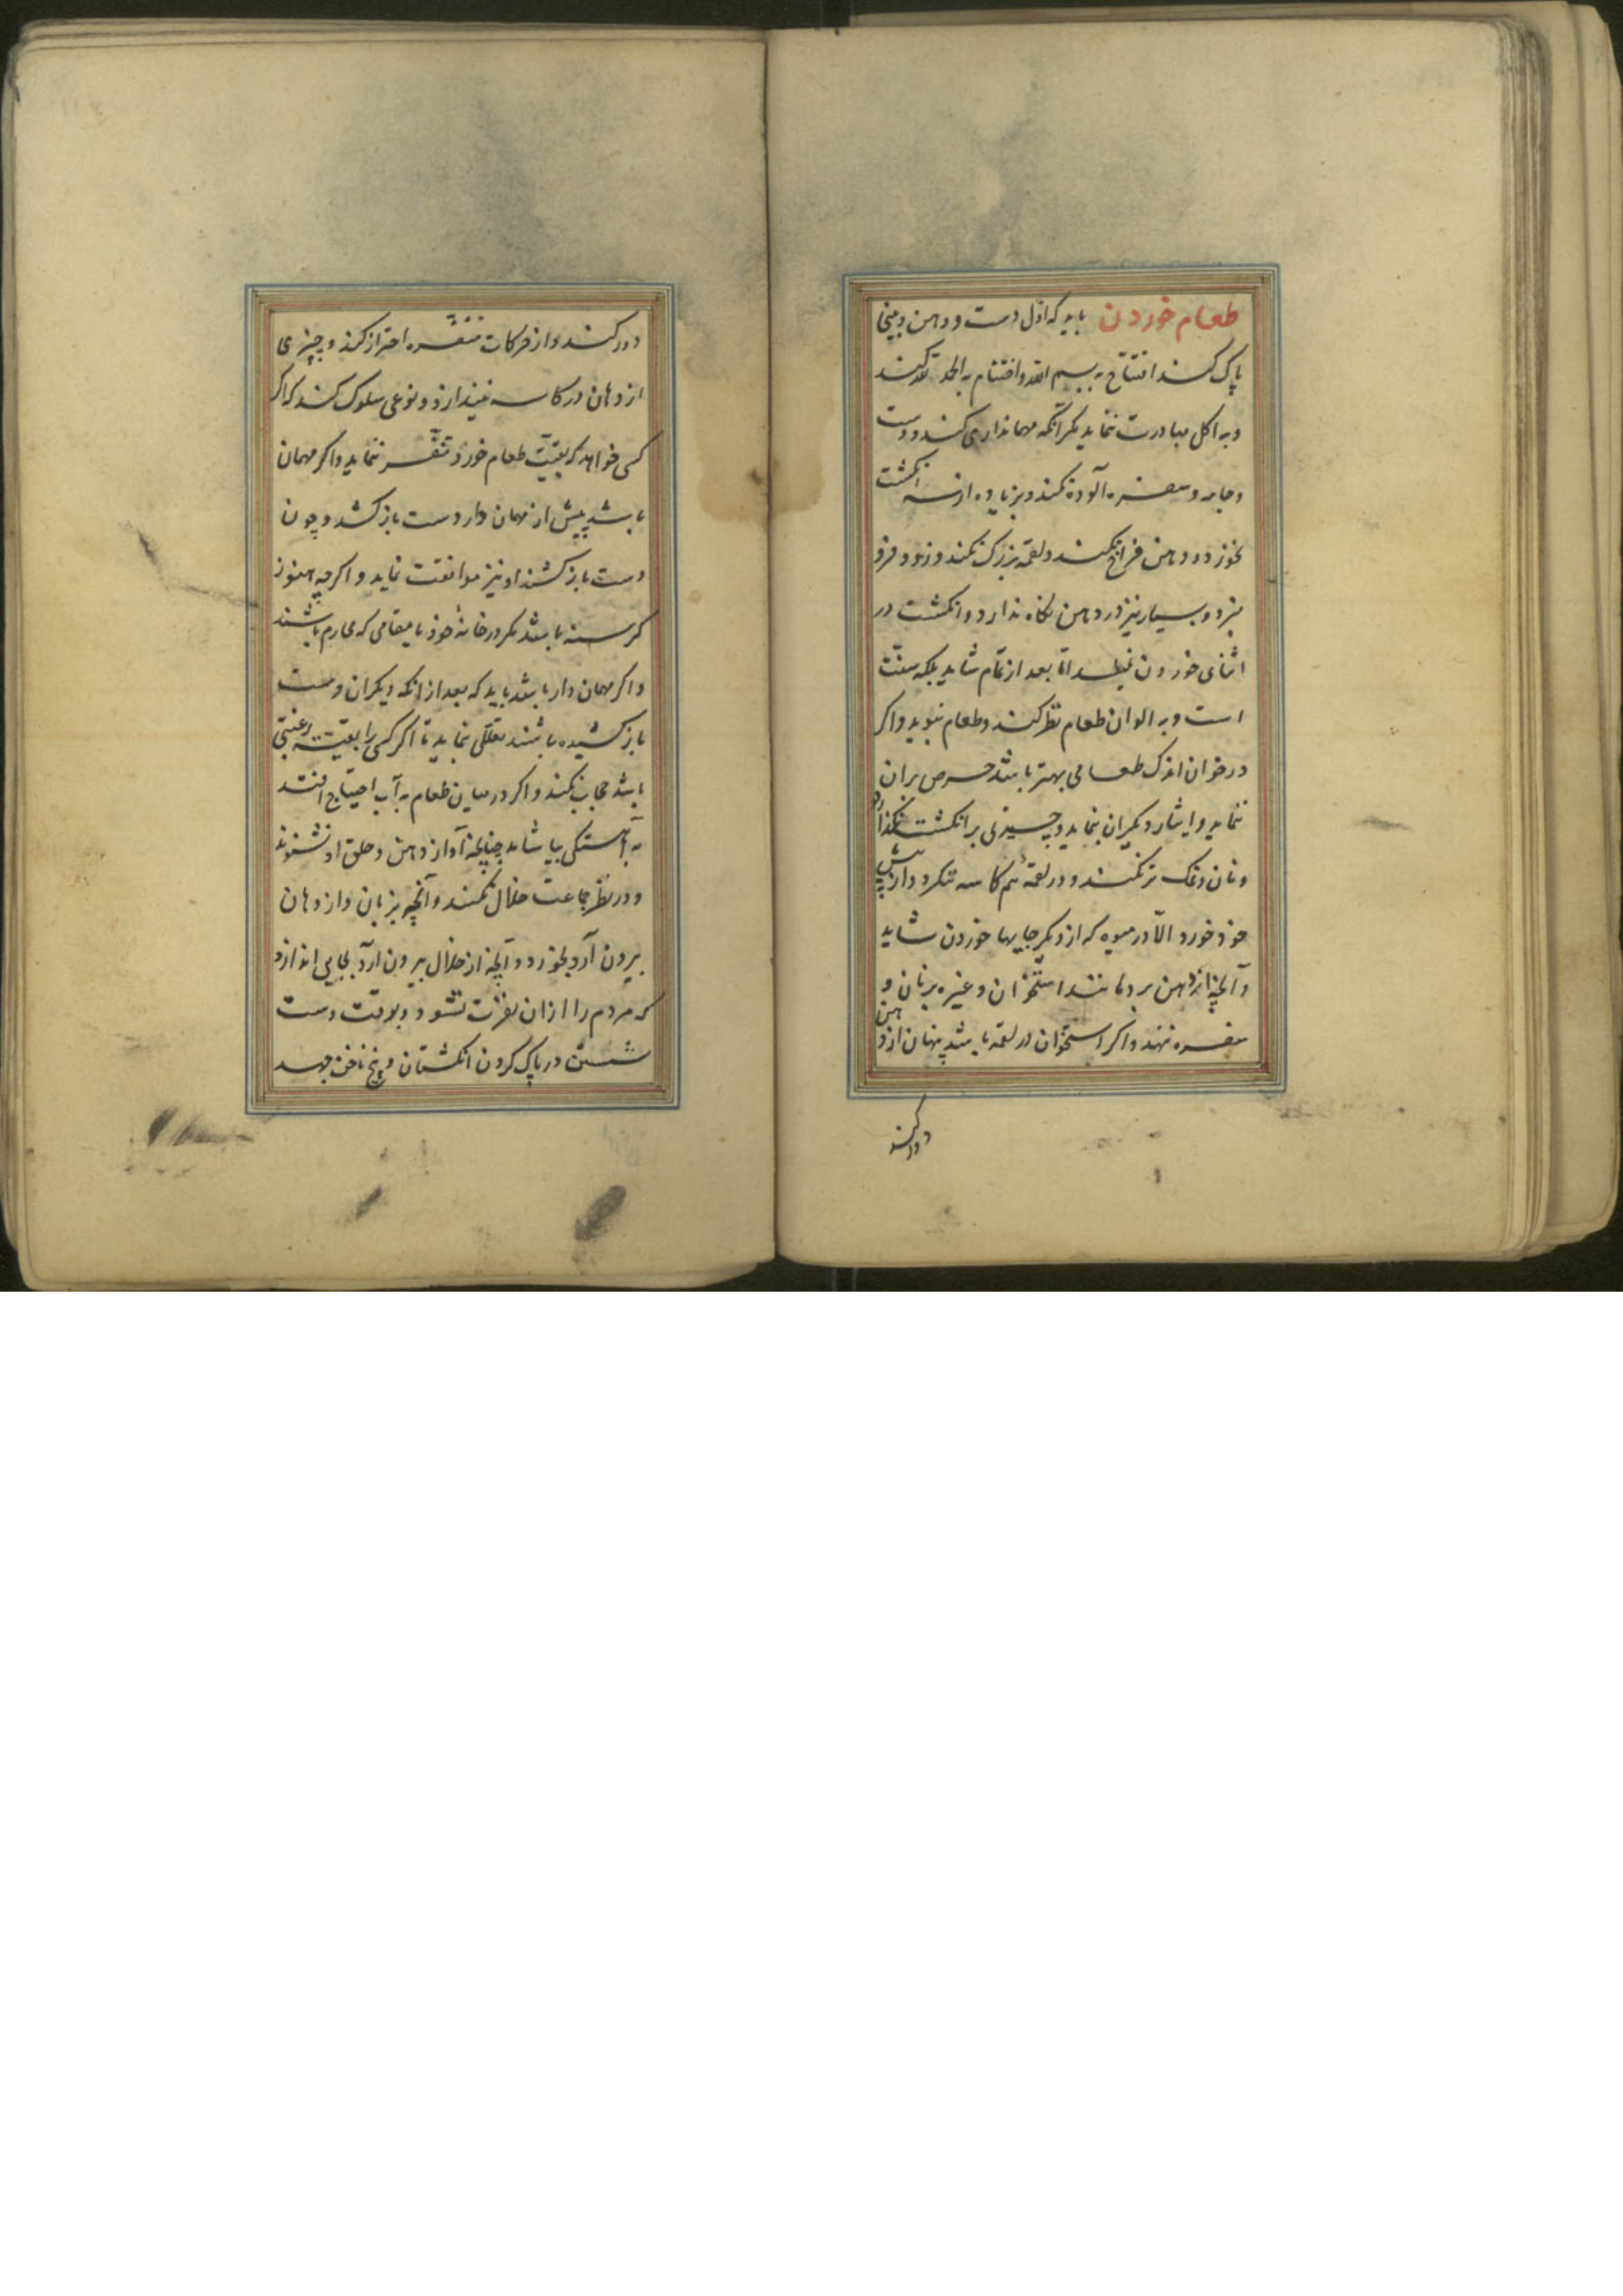 طعام خوردن باید که اول دست و دهن و بینی
پاک کند افتتاح به بسم الله و اختتام به الحمد لله کند
و به اکل مبادرت ننماید مگر آنکه مهمانداری کند و دست
و جامه و سفره آلوده نکند و بزیاده از سه انکشت
نخورد و دهن فراخ نکند و لقمه بزرک نکند و زود فرو
نبرد و بسیار نیز در دهن نکاه ندارد و انکشت در
اثنای خوردن نلیسد اما بعد از تمام شاید بلکه سنت
است و به الوان طعام نظر نکند و طعام نبوید و اکر
در خوان اندک طعامی بهتر باشد حرص بران
ننماید و ایثار دیکران بنماید و چیزی بر انکشت نکذارد
و نان و نمک تر نکند و در لقمهٔ هم کاسه ننکرد و از پیش
خود خورد الا در میوه که از دیکر جایها خوردن شاید
و آنچه از دهن بر د مانند استخوان و غیره بر نان و
سفره ننهد و اکر استخوان در لقمه باشد پنهان از دهن
دور کند
دور کند و از حرکات منفره احتراز کند و چیزی
از دهان در کاسه نیندازد و نوعی سلوک کند که اکر
کسی خواهد که بقیت طعام خورد تنفر ننماید و اکر مهمان
باشد پیش از مهمان دار دست باز کشد و چون
دست باز کشند او نیز موافقت نماید و اکرچه هنوز
کرسنه باشد مکر در خانه خود یا مقامی که محارم باشند
و اکر مهمان دار باشد باید که بعد از آنکه دیکران دست
باز کشیده باشند تعللی نماید تا اکر کسی را بقیت رغبتی
باشد حجاب نکند و اکر در میان طعام به آب احتیاج افتد
به آهستکی بیاشامد چنانچه آواز دهن و حلق او نشنوند
و در نظر جماعت خلال نکند و آنچه بزبان از دهان
بیرون آرد بخورد و آنچه از خلال بیرون آرد بجایی اندازد
که مردم را از آن نفرت نشود و بوقت دست
شستن در پاک کردن انکشتان و بیخ ناخن جهد